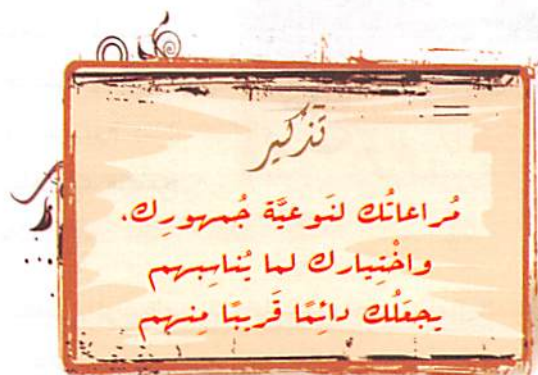 تذكير
مُراعاتُك لنَوعيَّة جُمهورِك،
واخْتِيارك لما يُناسِبهم
يجعَلُك دائِمًا قَريبًا مِنهم